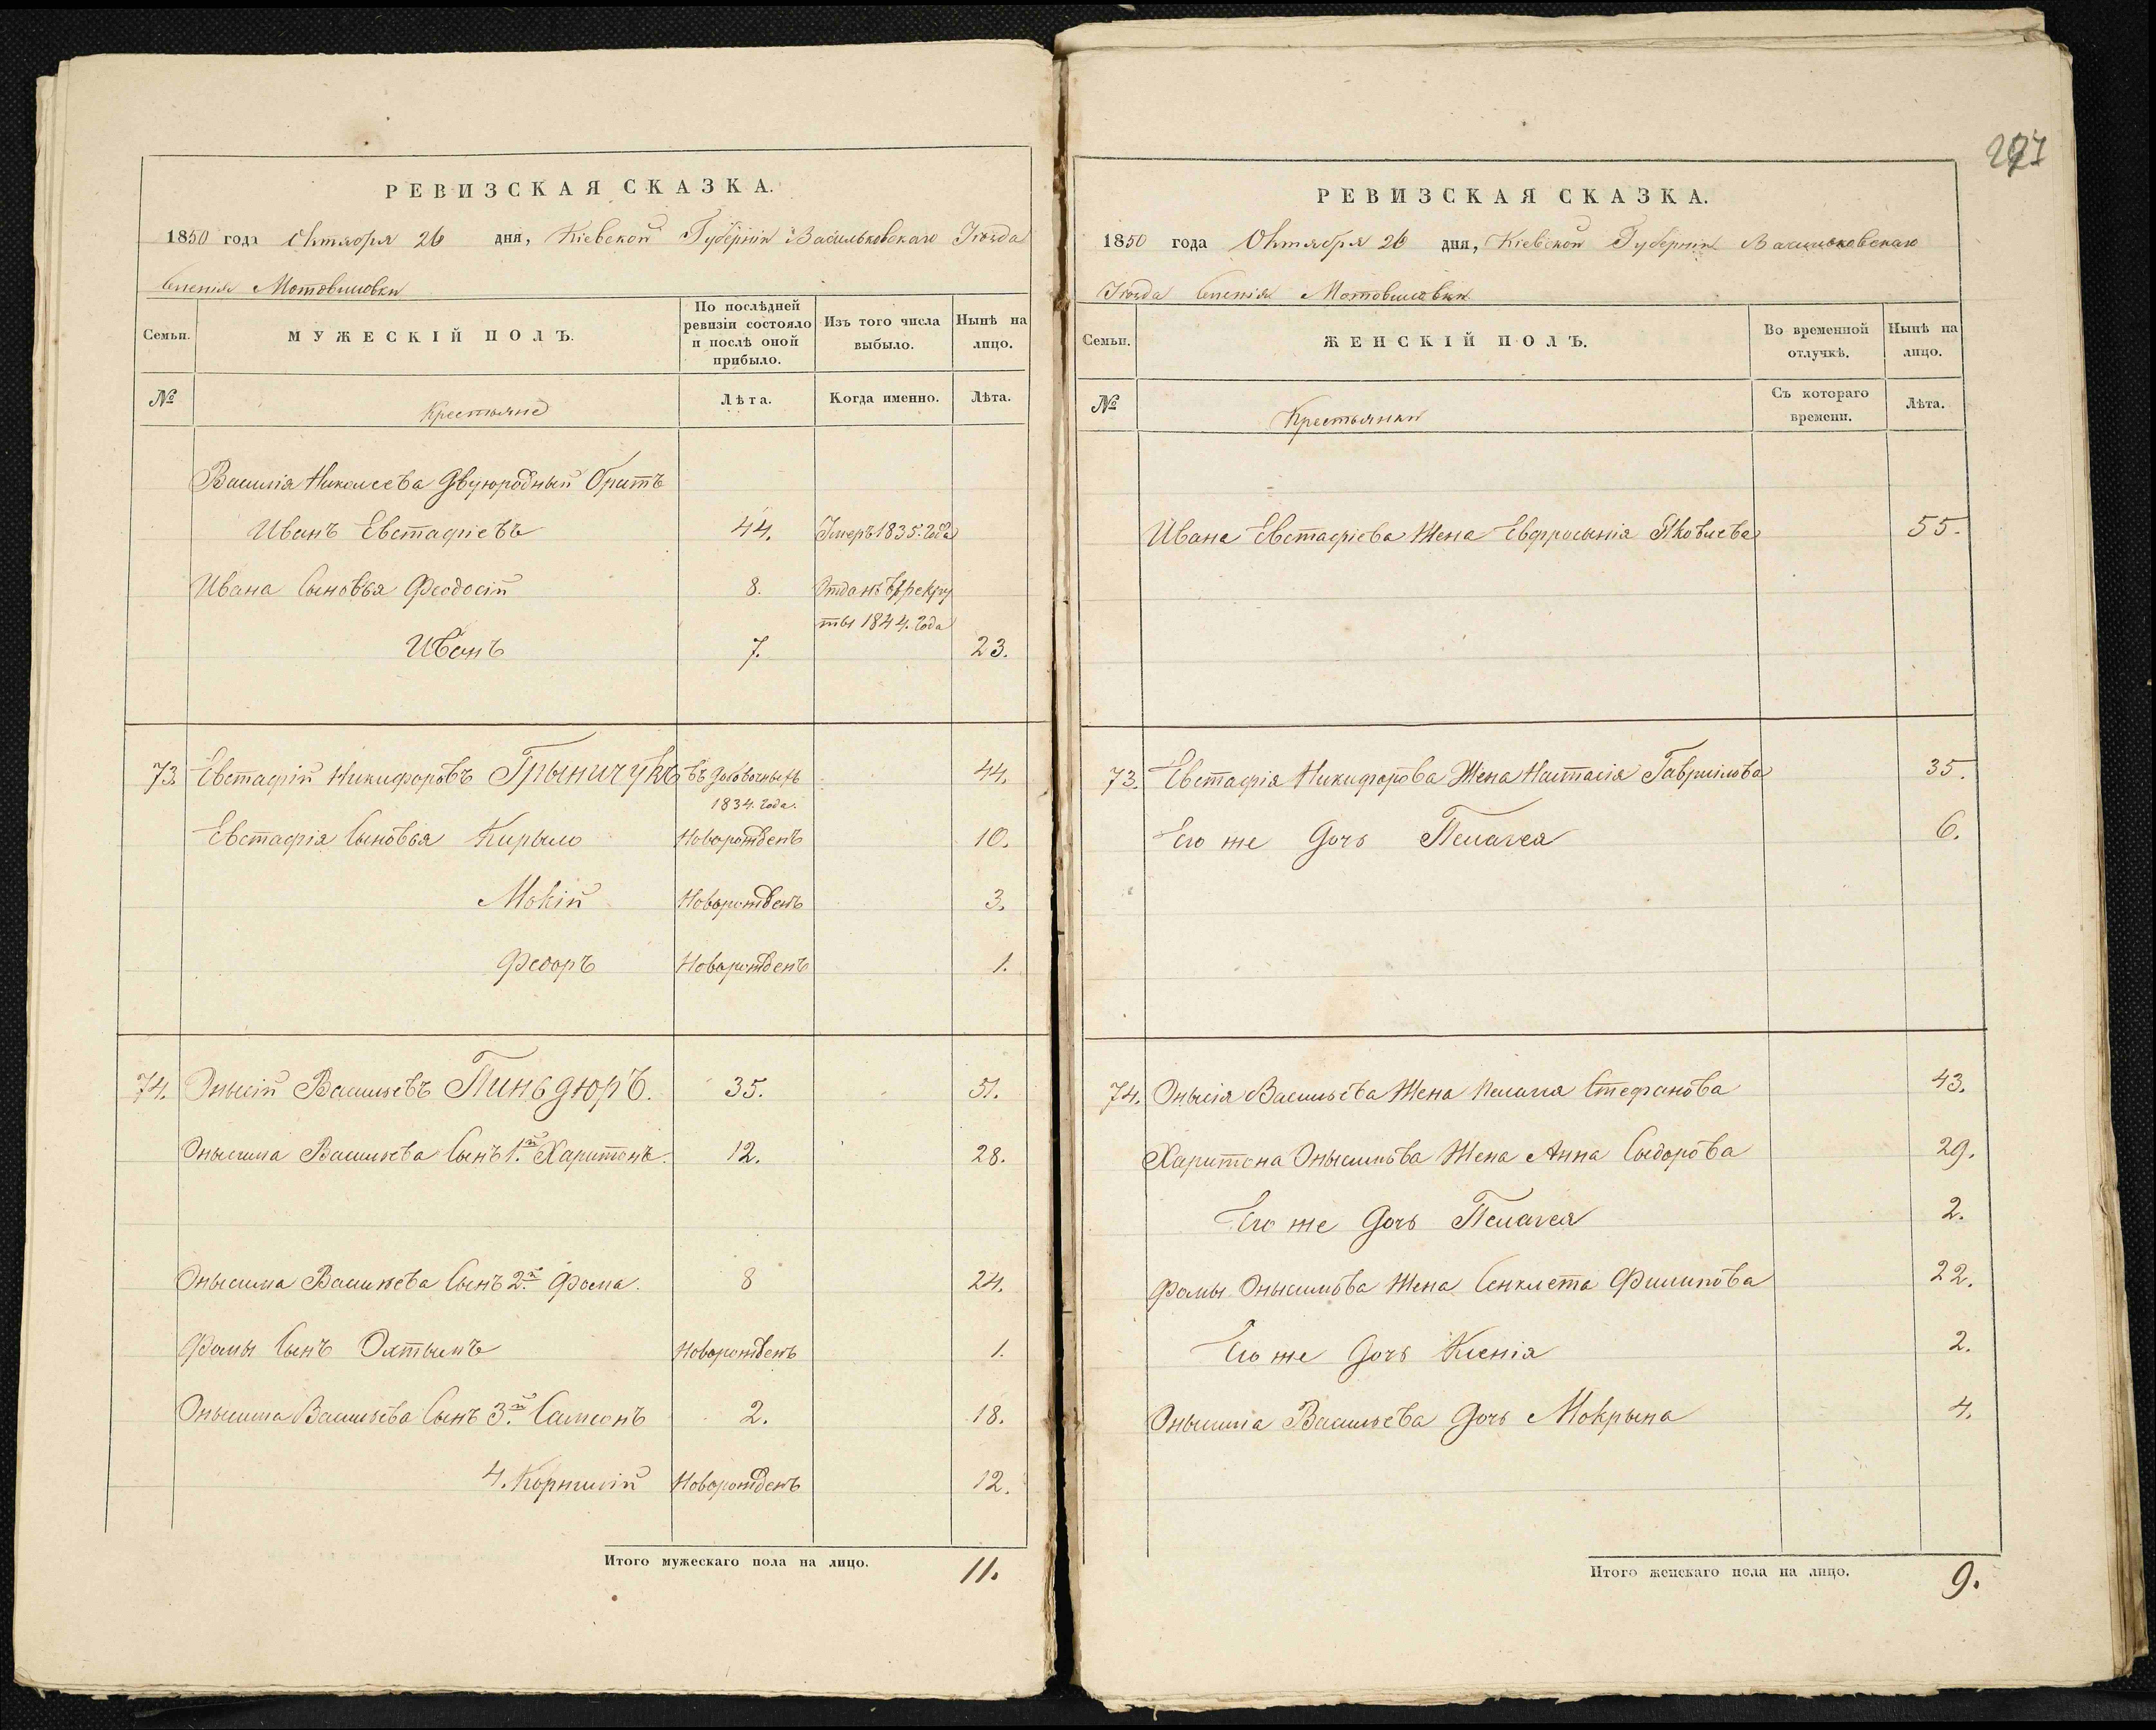 РЕВИЗСКАЯ СКАЗКА.
1850 года Октября 26 дня, Кіевской Губерніи Васильковскаго Уѣзда
Селенія Мотовиловки
Семьи. МУЖЕСКІЙ ПОЛЪ. По послѣдней ревизіи состояло и послѣ оной прибыло. Изъ того числа выбыло. Нынѣ на лицо.
№ Крестьяне Лѣта. Когда именно. Лѣта.
Василія Николаева Двуюродный Братъ
Иванъ Евстафіевъ 44. Умеръ 1835. года
Ивана Сыновья Феодосій 8. Отданъ в рекру
ты 1844. года
Иванъ 7. 23.
73. Евстафій Никифоровъ Грыничукъ въ добовочныхъ 44.
1834. года.
Евстафія Сыновья Кирыло Новорожденъ 10.
Мокій Новорожденъ 3.
Федоръ Новорожденъ 1.
74. Онысій Васильевъ Пиньдюръ. 35. 51.
Онысима Васильева Сынъ 1.й Харитонъ. 12. 28.
Онысима Васильева Сынъ 2.й Фома. 8 24.
Фомы Сынъ Новорожденъ 1.
Онысима Васильева Сынъ 3.й Самсонъ 2. 18.
4. Корнилій Новорожденъ 12.
Итого мужескаго пола на лицо. 11.
РЕВИЗСКАЯ СКАЗКА.
1850 года Октября 26 дня, Кіевской Губерніи Васильковскаго
Уѣзда Селенія Мотовиловки
Семьи. ЖЕНСКІЙ ПОЛЪ. Во временной отлучкѣ. Нынѣ на лицо.
№ Крестьянки Съ котораго времени. Лѣта.
Ивана Евстафіева Жена Евфросынія Яковлева 55.
73. Евстафія Никифорова Жена Настасія Гаврилова 35.
Его же Дочь Пелагея 6.
74. Онысія Васильева Жена Стефанова 43.
Харитона Онысимова Жена Анна Сыдорова 29.
Его же Дочь Пелагея 2.
Фомы Онысимова Жена Синклета Филипова 22.
Его же Дочь Ксенія 2.
Онысима Васильева Дочь Мокрына 4.
Итого женскаго пола на лицо. 9.